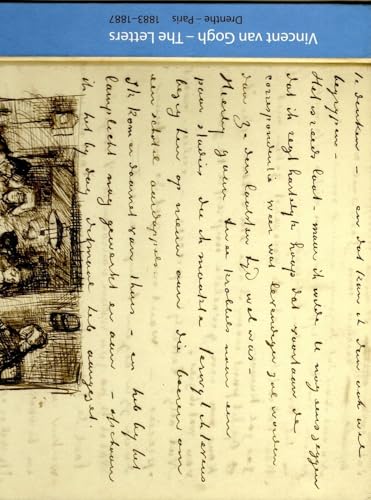 Vincent van Gogh – The Letters
Drenthe – Paris 1883–1887
te denken – en dat kan ik dan ook wel
begrijpen –
Het is reeds laat – maar ik wilde U nog eens zeggen
dat ik regt hartelijk hoop dat voortaan de
correspondentie weer wat levendiger zal worden
dan ze den laatsten tijd wel was –
Hierbij gaan twee krabbels naar een
paar studies die ik maakte terwijl ik tevens
bezig ben op nieuw aan die boeren om
een schotel aardappels
Ik kom er daarnet van thuis – en heb bij het
lamplicht nog gewerkt er aan – ofschoon
ik het bij dag ditmaal heb aangezet